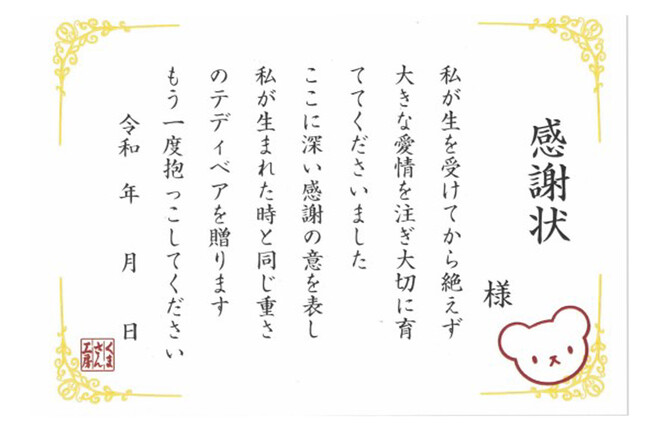 感謝状
様
私が生を受けてから絶えず
大きな愛情を注ぎ大切に育
ててくださいました
ここに深い感謝の意を表し
私が生まれた時と同じ重さ
のテディベアを贈ります
もう一度抱っこしてください
令和 年 月 日
くま
さん
工房